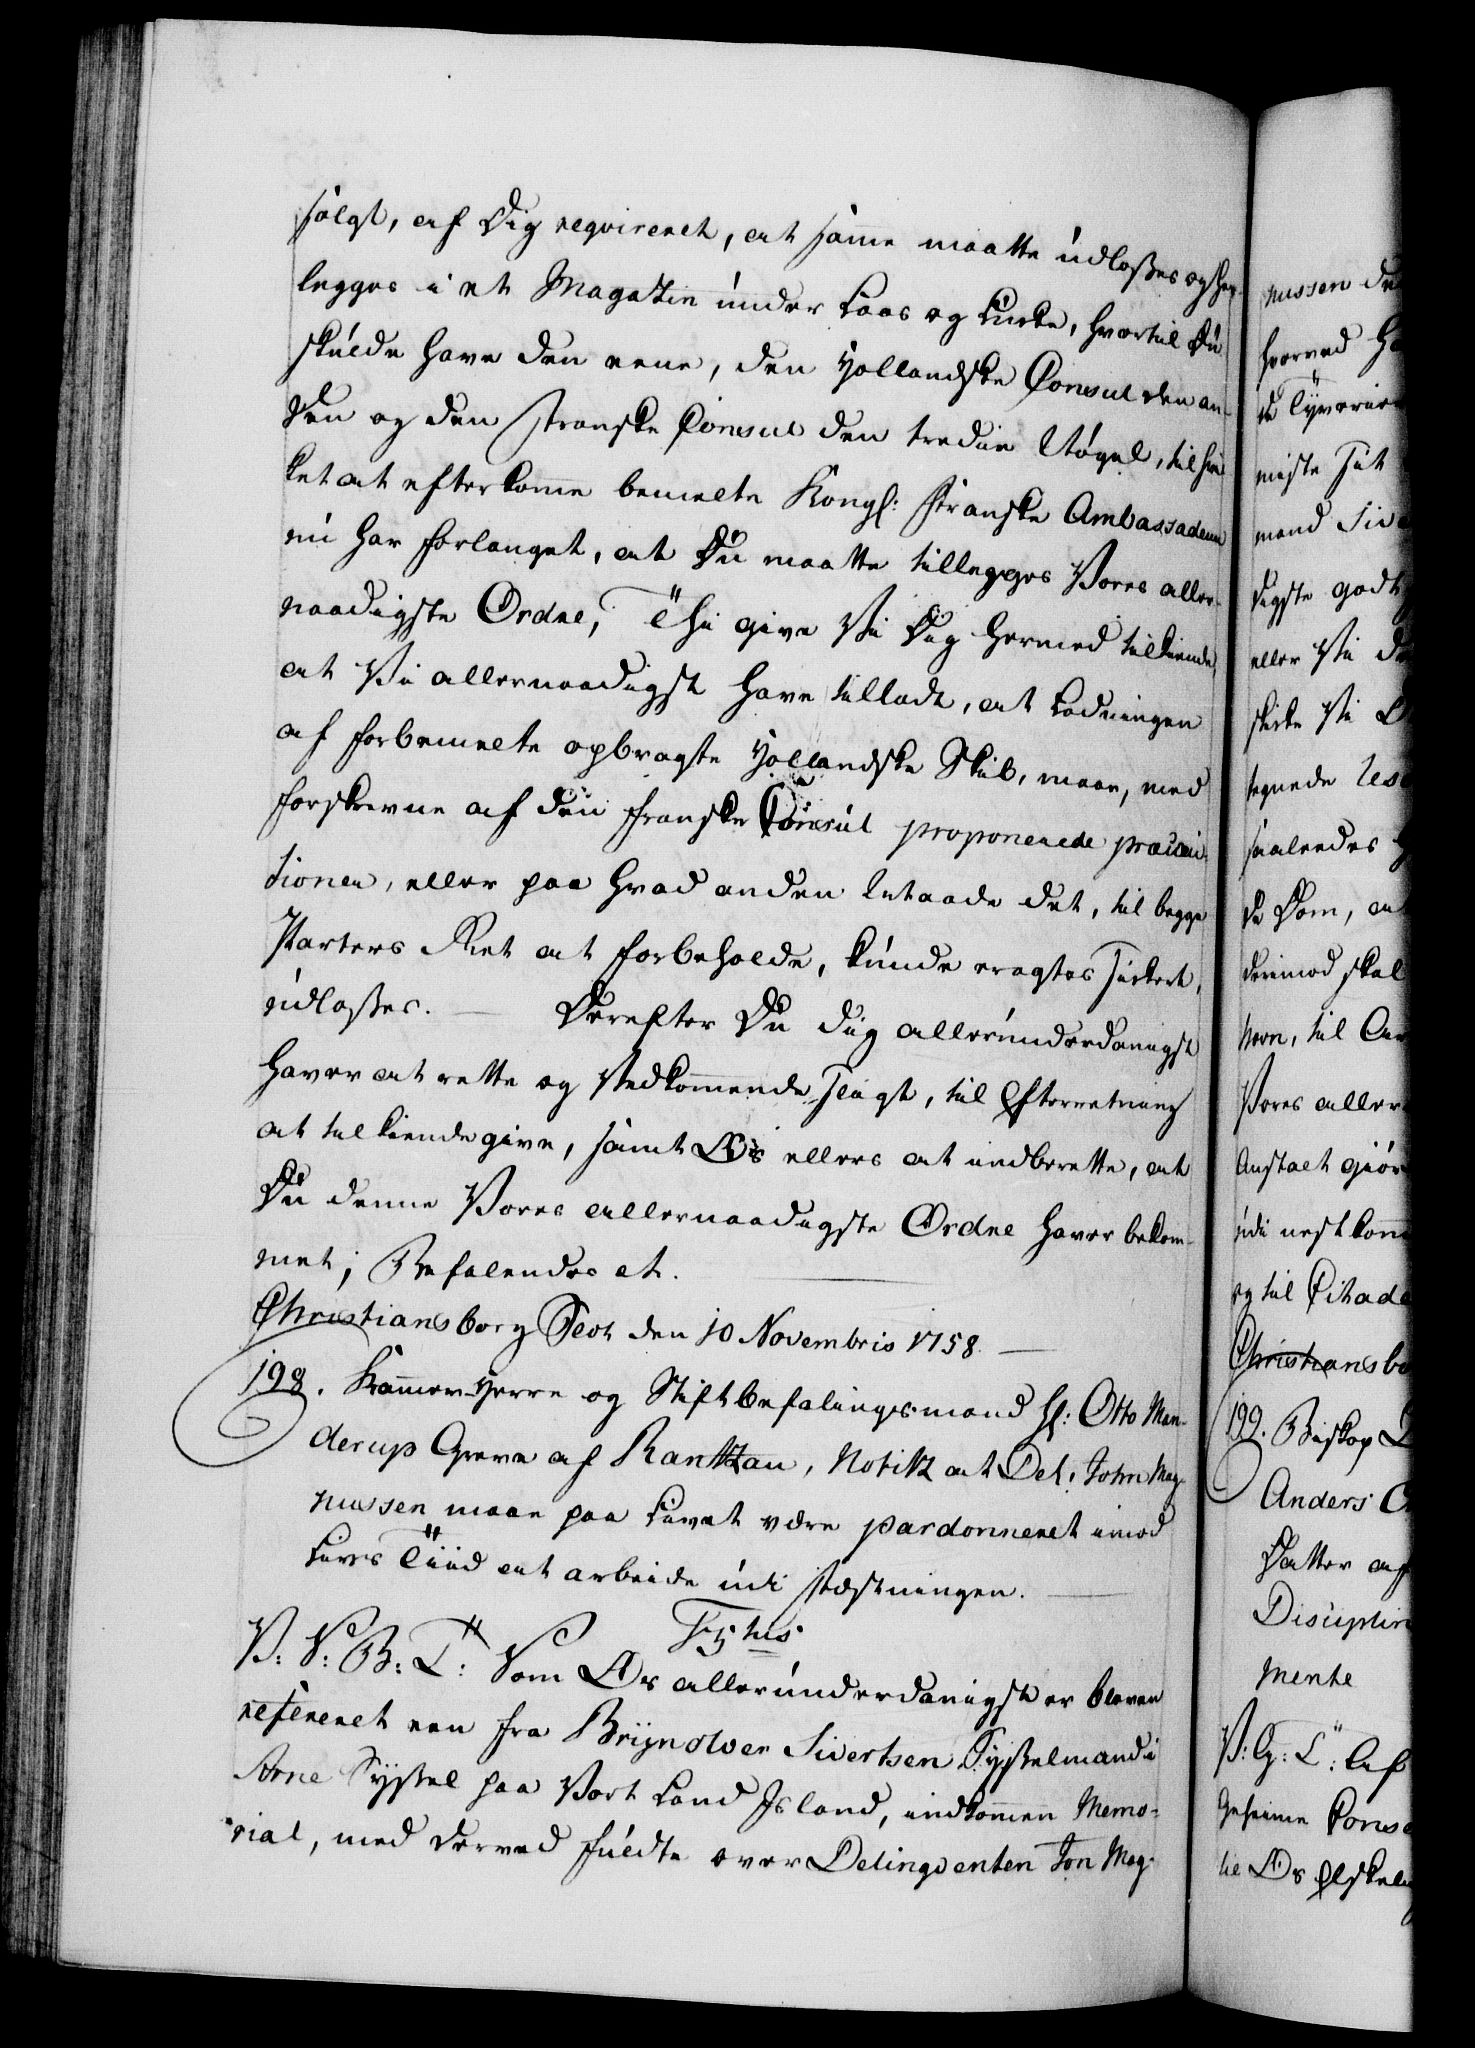 følgt, af Dig reqvireret, at samme maatte udlosses og hen-
legges i et Magazin under Laas og Lukke, hvortil Du
skulde have den eene, den Hollandske Consul den an-
den og den Franske Consul den tredie Nøgel, til hvil-
ket at efterkomme bemelte Kongl: Franske Ambassadeur
nu har forlanget, at Du maatte tillegges Vores aller-
naadigste Ordre, Thi give Vi Dig hermed tilkiende,
at Vi allernaadigst have tilladt, at Ladningen
af forbemelte opbragte Hollandske Skib, maae, med
forskrevne af den franske Consul proponerede præcau-
tioner, eller paa hvad anden Maade det, til begge
Parters Ret at forbeholde, kunde eragtes sikkert,
udlosses. — Derefter Du dig allerunderdanigst
haver at rette og Vedkommende sligt, til Efterretning
at tilkiendegive, samt Os ellers at indberette, at
Du denne Vores allernaadigste Ordre haver bekom-
met; Befalendes et.
Christiansborg Slot den 10 Novembris 1758.
198. Kammer-Herre og Stiftbefalingsmand Hl: Otto Man-
derup Greve af Rantzau, Notitz at Del: John Mag-
nussen maae paa Livet være pardonneret imod
Livs Tiid at arbeide udi Fæstningen.
V: S: B: T: Som Os allerunderdanigst er bleven
refereret een fra Brijnolver Sivertsen Sysselmand i
Arne Syssel paa Vort Land Island, indkommen Memo-
rial, med derved fulte over Delinqventen Jon Mag-
nussen
hvorved
de Tyverier
miste sit
mand
digste godt
eller Vi
skikke Vi
tegnede
saaledes
de Dom, at
derimod skal
hvor, til
Vores aller
Anstalt giør
udi nestkom
og til Citade
Christiansbo
199. Biskop
Anders
Datter af
Disciplin
mente
V: G: T: Af
Geheime Conse
til Os Elskelig